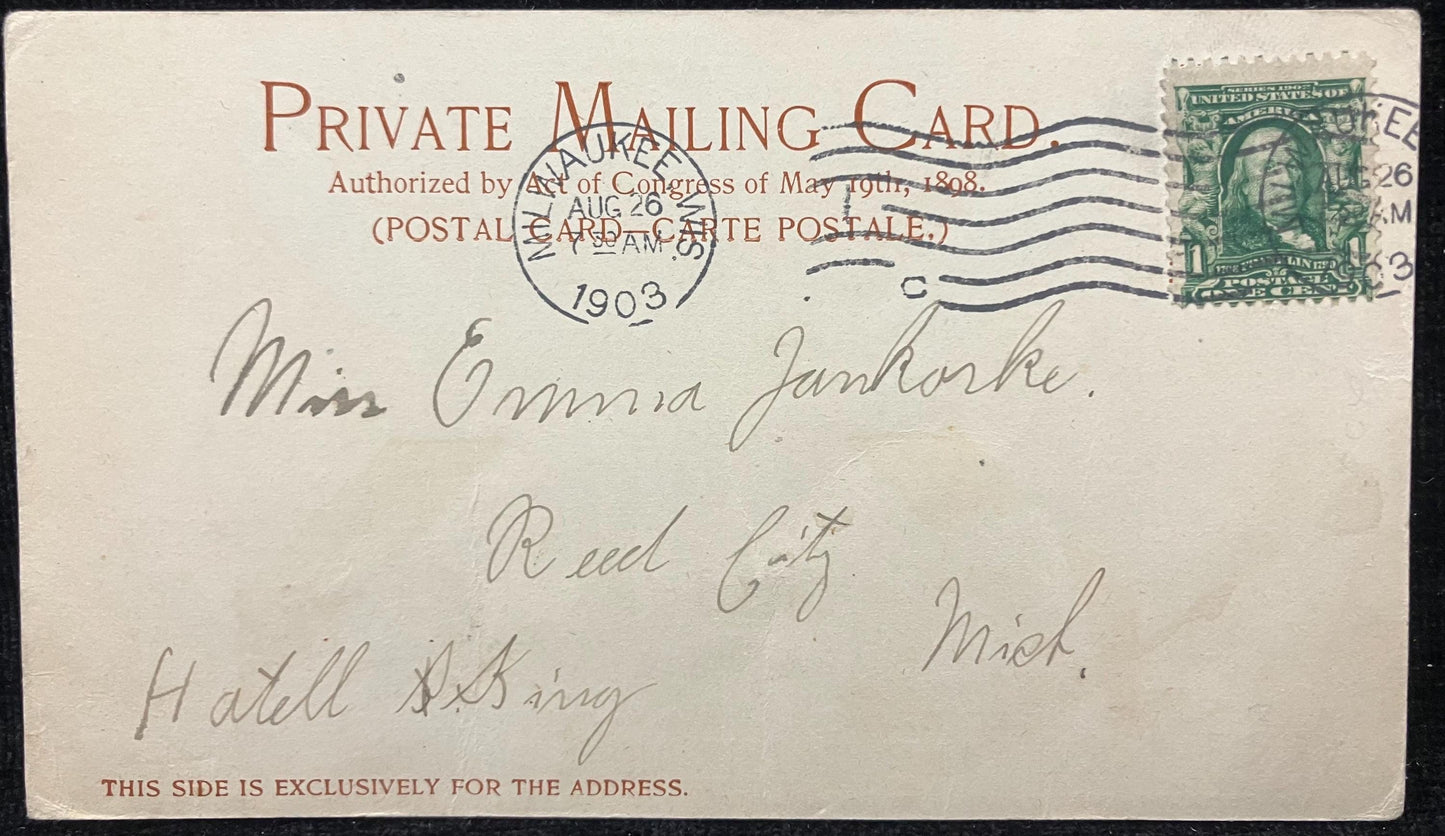 PRIVATE MAILING CARD.
Authorized by Act of Congress of May 19th, 1898.
(POSTAL CARD—CARTE POSTALE.)
MILWAUKEE WIS.
AUG 26
7 30 AM
1903
C
SERIES 1902
UNITED STATES OF
AMERICA
1 1
POSTAGE
ONE CENT
AUG 26
AM
Miss Emma Jankorke.
Reed City
Mich.
Hatell King
THIS SIDE IS EXCLUSIVELY FOR THE ADDRESS.